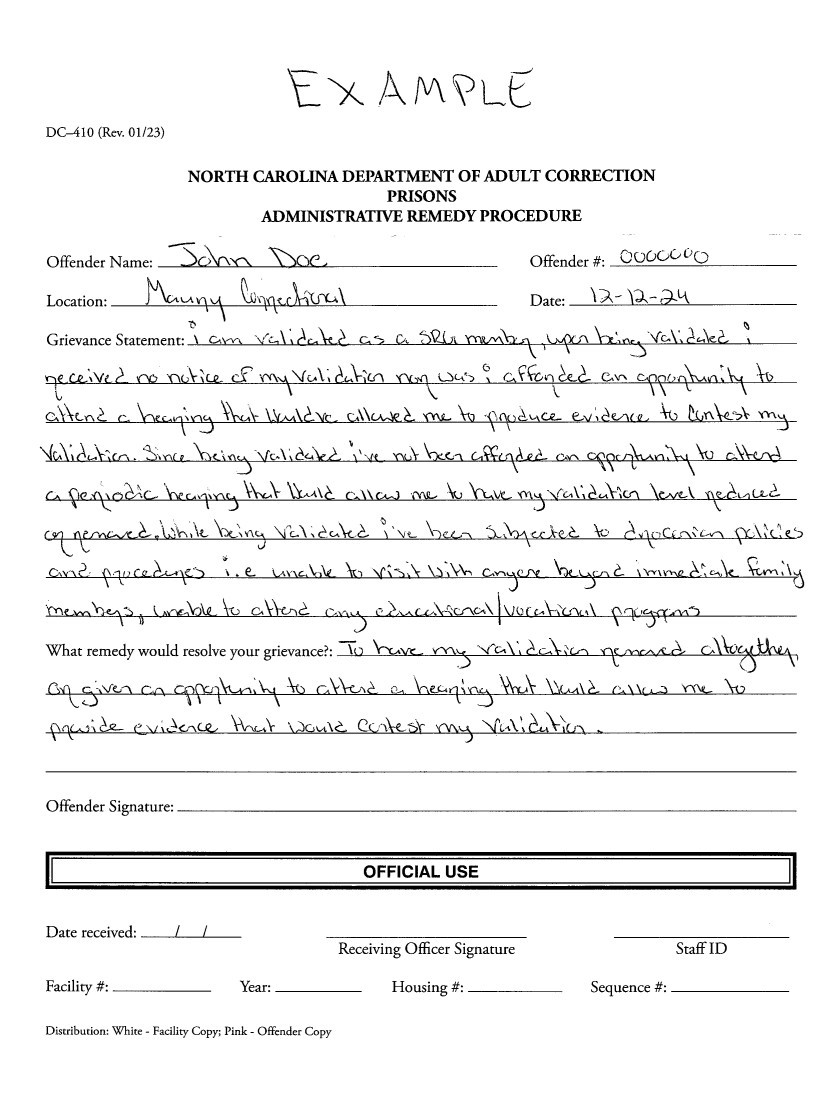 EXAMPLE
DC-410 (Rev. 01/23)
NORTH CAROLINA DEPARTMENT OF ADULT CORRECTION
PRISONS
ADMINISTRATIVE REMEDY PROCEDURE
Offender Name: John Doe Offender #: 0000000
Location: Maury Correctional Date: 12-12-24
Grievance Statement: i am validated as a SRG member, upon being validated i
received no notice of my validation nor was i afforded an opportunity to
attend a hearing that would've allowed me to produce evidence to contest my
validation. Since being validated i've not been afforded an opportunity to attend
a periodic hearing that would allow me to have my validation level reduced
or removed. While being validated i've been subjected to draconian policies
and procedures i.e unable to visit with anyone beyond immediate family
members, unable to attend any educational/vocational programs
What remedy would resolve your grievance?: To have my validation removed altogether,
or given an opportunity to attend a hearing that would allow me to
provide evidence that would contest my validation.
Offender Signature:
OFFICIAL USE
Date received: / /
Receiving Officer Signature Staff ID
Facility #: Year: Housing #: Sequence #:
Distribution: White - Facility Copy; Pink - Offender Copy